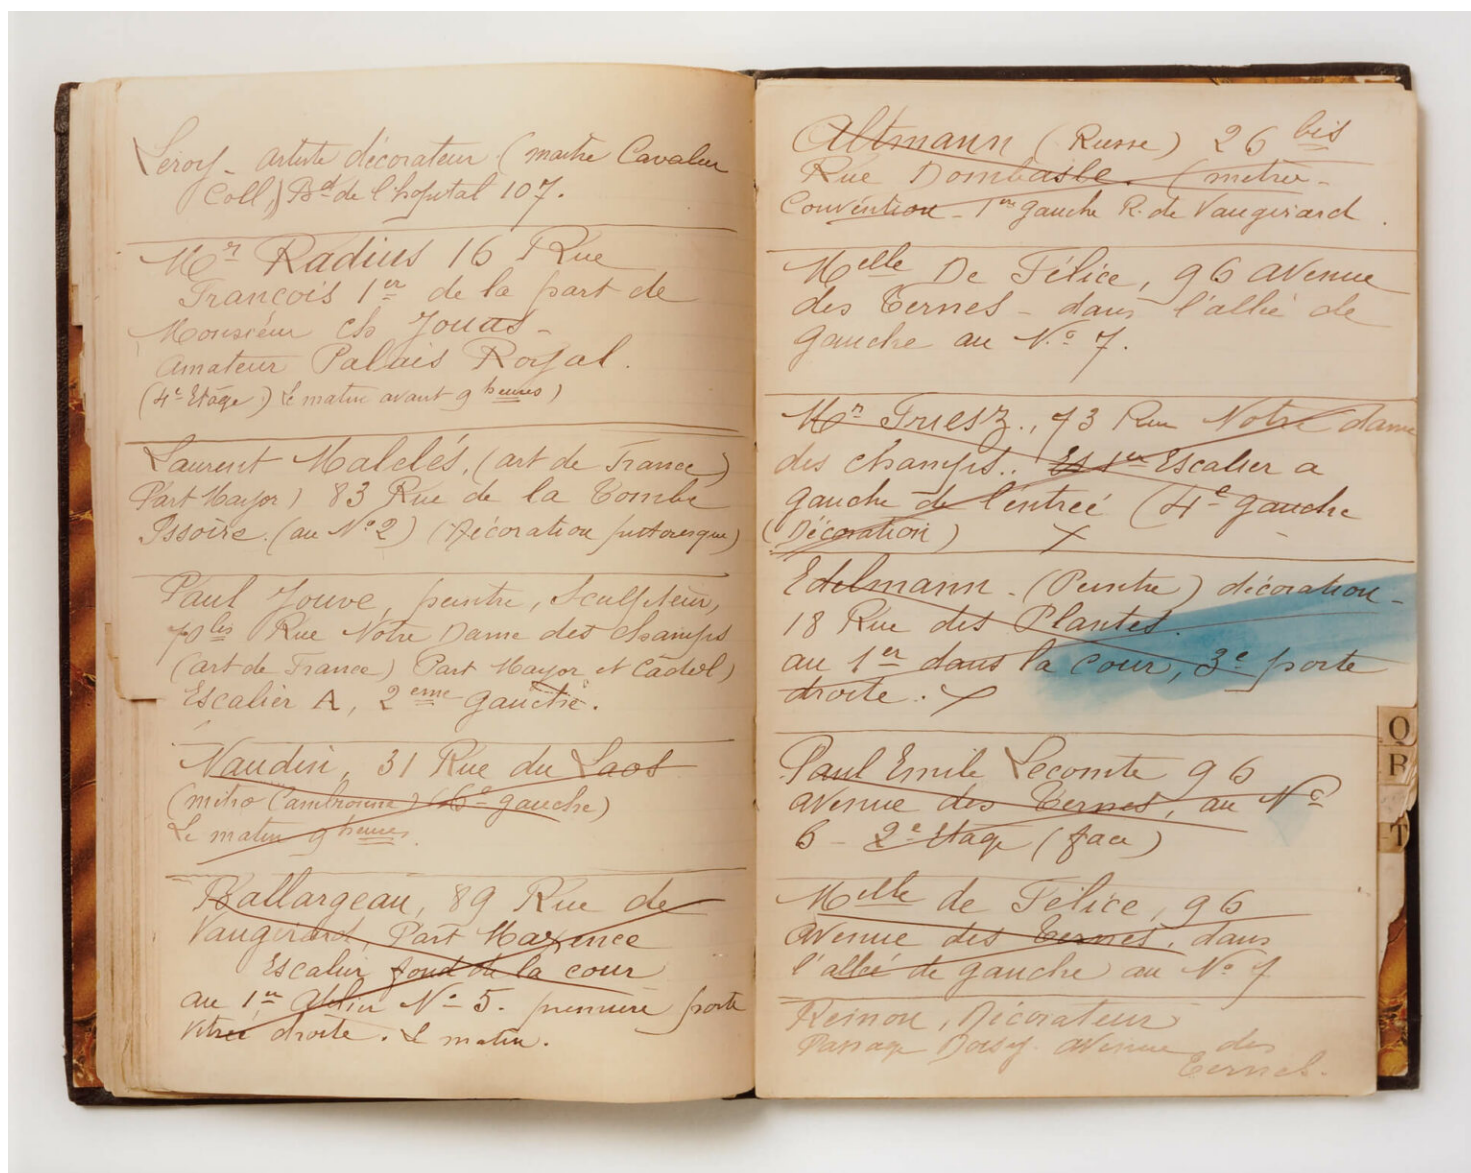 Leroy - artiste décorateur (maitre Cavalier
Coll,) Bd de l'hopital 107.
Mr Radius 16 Rue
François 1er de la part de
Monsieur ch Jouas -
amateur Palais Royal.
(4e Etage) Le matin avant 9 heures)
Laurent Malclés, (art de France)
Part Mayor) 83 Rue de la Tombe
Issoire. (au No 2) (Décoration pittoresque)
Paul Jouve, peintre, Sculpteur,
bis Rue Notre Dame des champs
(art de France) Part Mayor et Cadel)
Escalier A, 2eme gauche.
Naudin, 31 Rue du Laos
(métro Cambronne) (6e gauche)
Le matin 9 heures
Ballargeau, 89 Rue de
Vaugirard, Part Maxence
Escalier fond de la cour
au 1er No 5. premiere porte
vitreé droite. Le matin.
Altmann (Russe) 26 bis
Rue Dombasle. (métro -
Convention - 1er gauche R. de Vaugirard.
Melle De Félice, 96 avenue
des Ternes - dans l'allée de
gauche au No 7.
Mr Friesz, 73 Rue Notre dame
des champs.. 1er Escalier a
gauche de l'entreé (4e gauche
(Décoration) X
Edelmann - (Peintre) décoration -
18 Rue des Plantes.
au 1er dans la cour, 3e porte
droite. X
Paul Emile Lecomte 96
avenue des Ternes, au No
6 - 2e Etage (face)
Melle de Félice, 96
avenue des Ternes, dans
l'allée de gauche au No 7
Reinou, Décorateur
Passage Doisy avenue des
Ternes.
Q
R
T